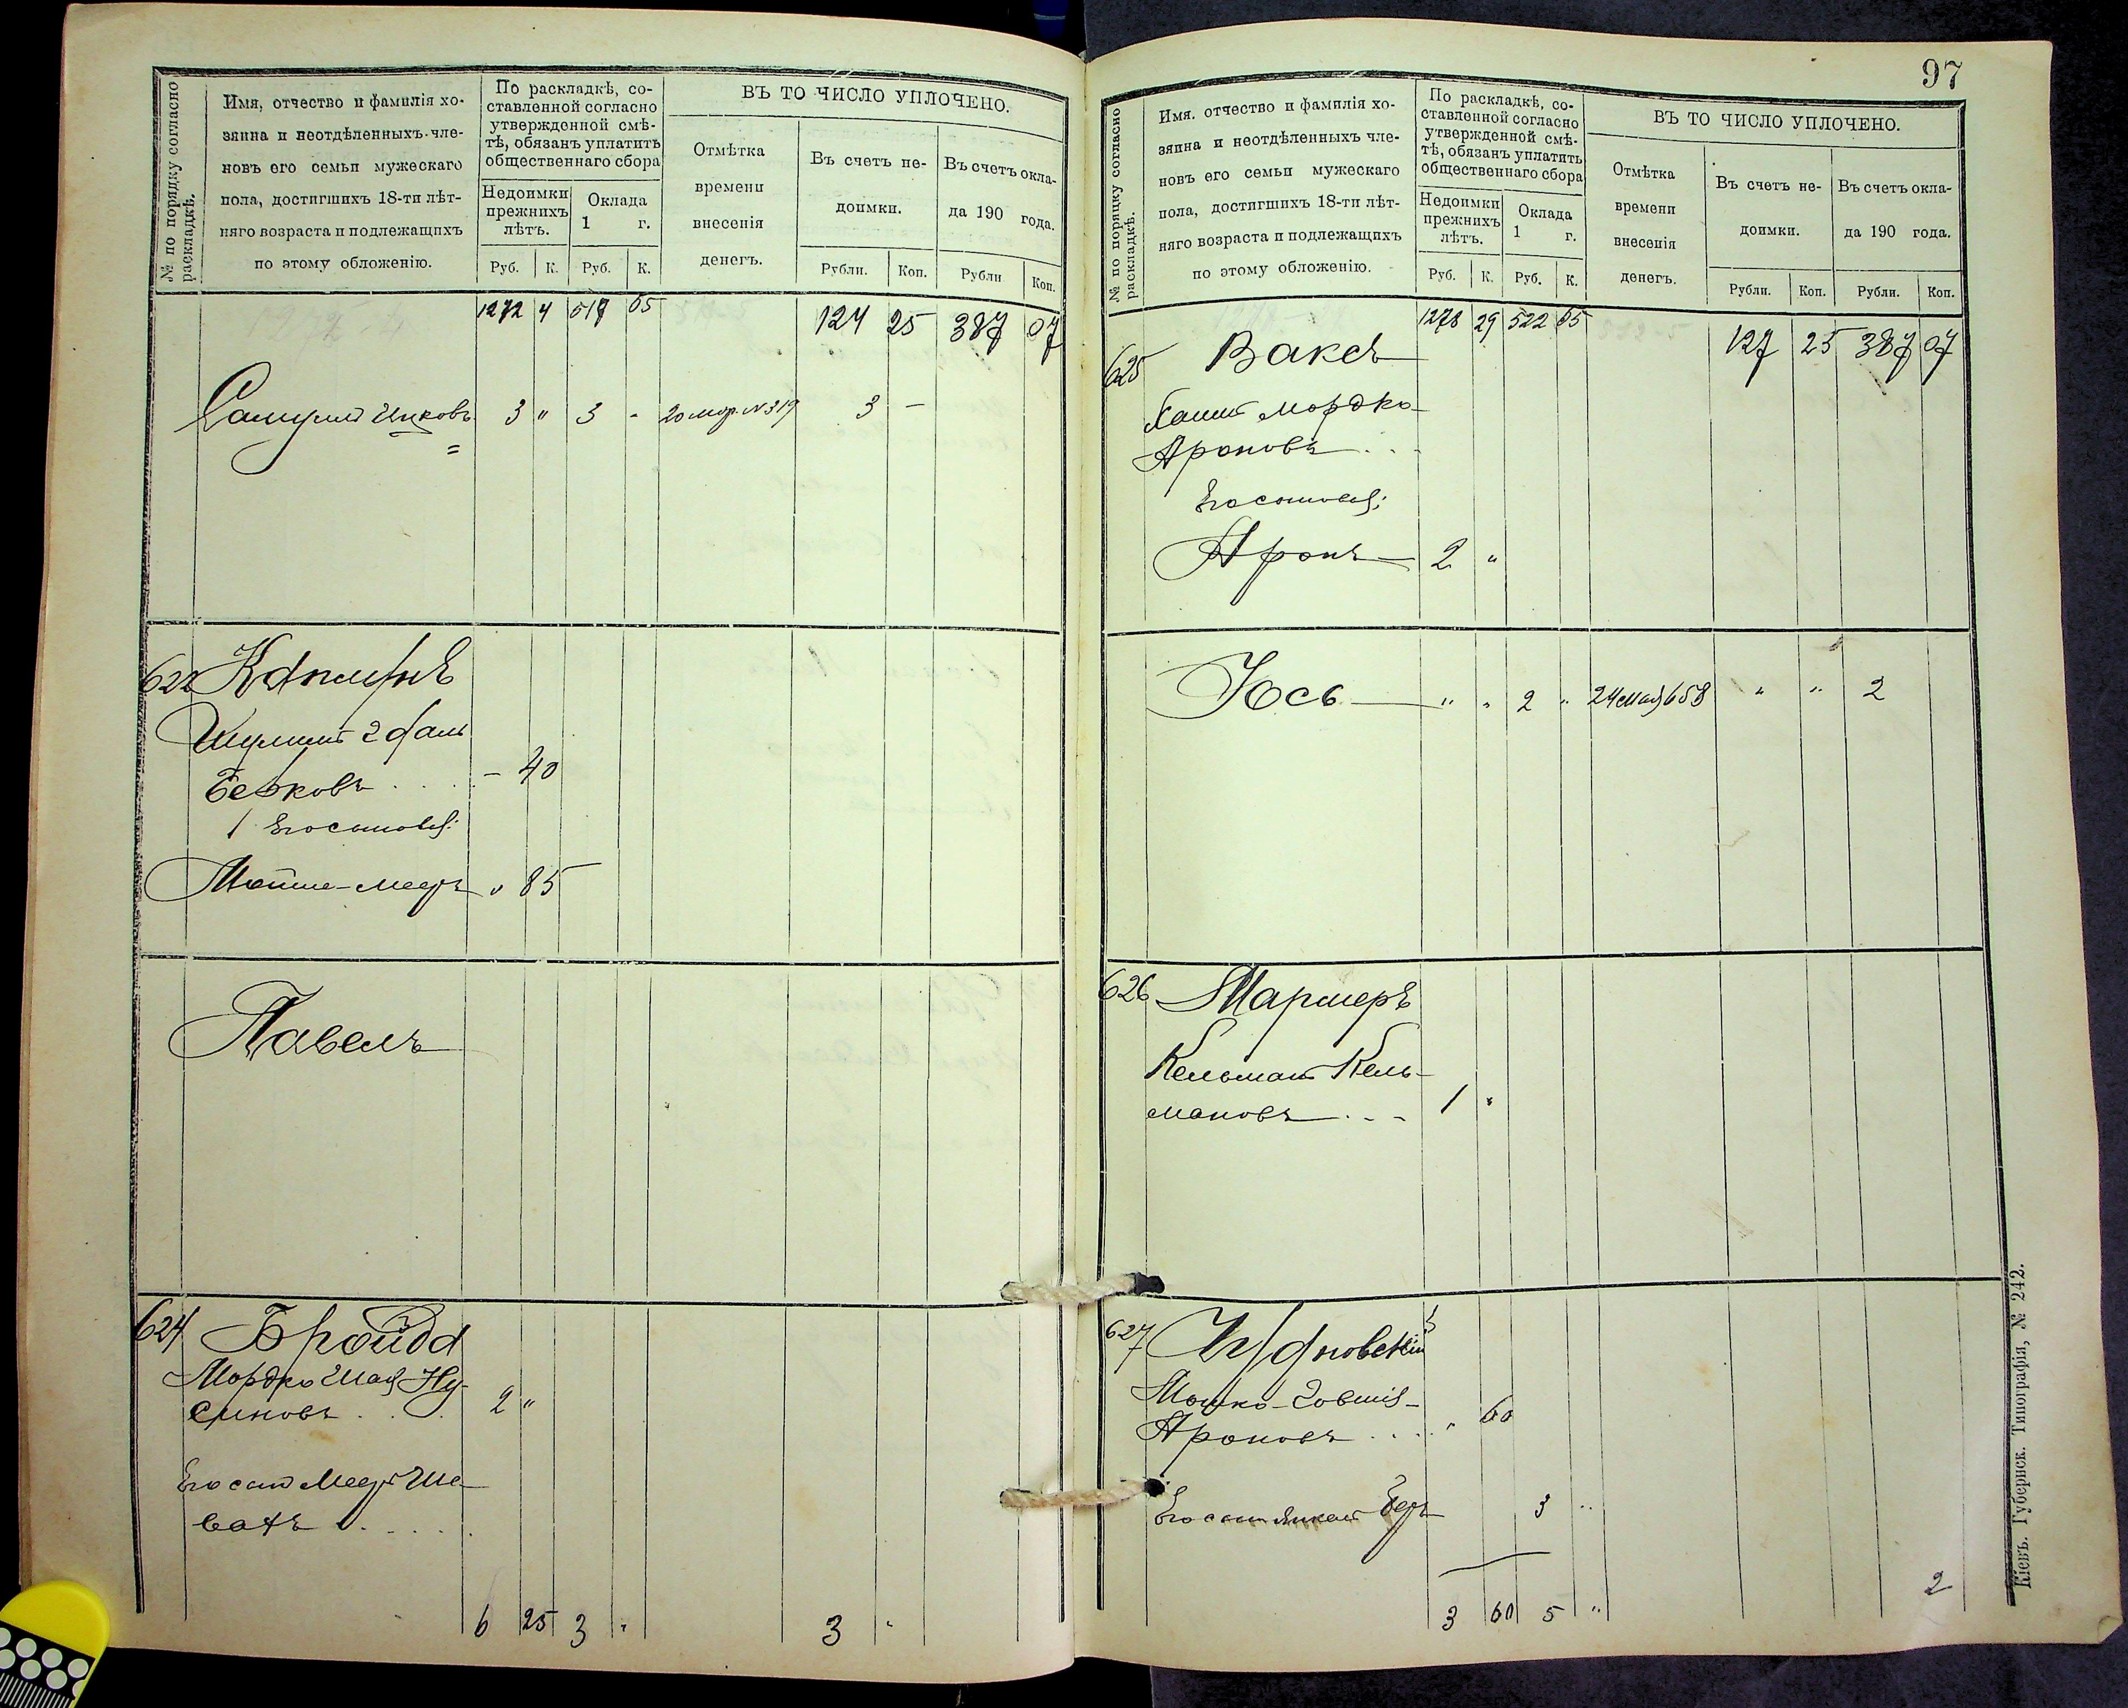 № по порядку согласно раскладкѣ.
Имя, отчество и фамилія хо-
зяина и неотдѣленныхъ чле-
новъ его семьи мужескаго
пола, достигшихъ 18-ти лѣт-
няго возраста и подлежащихъ
по этому обложенію.
По раскладкѣ, со-
ставленной согласно
утвержденной смѣ-
тѣ, обязанъ уплатить
общественнаго сбора
Недоимки
прежнихъ
лѣтъ.
Оклада
1 г.
Руб. К. Руб. К.
ВЪ ТО ЧИСЛО УПЛОЧЕНО.
Отмѣтка
времени
внесенія
денегъ.
Въ счетъ не-
доимки.
Въ счетъ окла-
да 190 года.
Рубли. Коп. Рубли Коп.
1272 4 517 65 124 25 387 07
Самуилъ Ицковъ 3 " 3 - 20 мар. № 319 3 -
622 Капланъ
Шулимъ
Берковъ . . . . - 40
Его сыновья:
Мошко-Мееръ " 85
Павелъ
624 Бройда
Мордко Шая Ну-
синовъ . . . 2 "
Его сынъ Меер Ше-
вахъ . . . . .
6 25 3 " 3 "
97
№ по порядку согласно раскладкѣ.
Имя. отчество и фамилія хо-
зяина и неотдѣленныхъ чле-
новъ его семьи мужескаго
пола, достигшихъ 18-ти лѣт-
няго возраста и подлежащихъ
по этому обложенію.
По раскладкѣ, со-
ставленной согласно
утвержденной смѣ-
тѣ, обязанъ уплатить
общественнаго сбора
Недоимки
прежнихъ
лѣтъ.
Оклада
1 г.
Руб. К. Руб. К.
ВЪ ТО ЧИСЛО УПЛОЧЕНО.
Отмѣтка
времени
внесенія
денегъ.
Въ счетъ не-
доимки.
Въ счетъ окла-
да 190 года.
Рубли. Коп. Рубли. Коп.
1278 29 522 65 127 25 387 07
625 Ваксъ
Хаимъ Мордко-
Ароновъ . . .
Его сыновья:
Аронъ 2 "
Юсь " " 2 " 24 мая 658 " " 2
626 Мармеръ
Кельманъ Кель-
мановъ . . - 1 "
627 Чудновскій
Мошко-Говшія-
Ароновъ . . . . " 60
Его сынъ Янкель Беръ 3 "
3 60 5 " 2
Кіевъ. Губернск. Типографія, № 242.